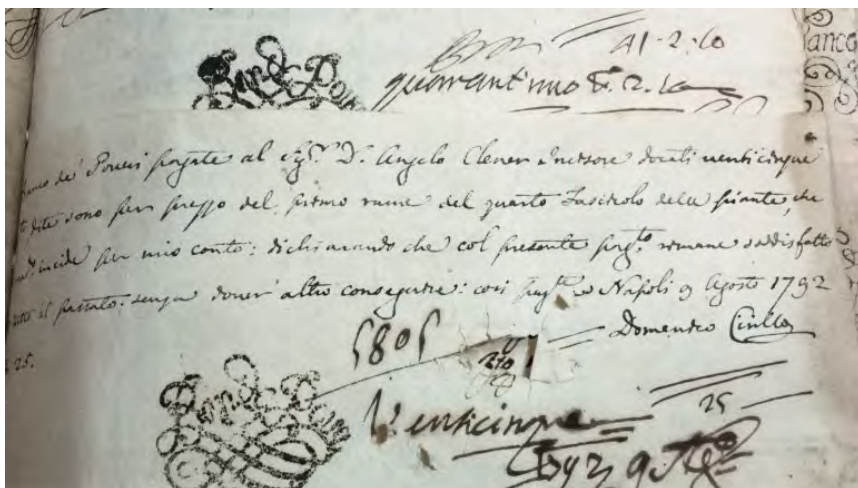 41-2-10
quarant'uno d. 2. 10
Banco
de' Poveri pagate al Sig.r D. Angelo Clener Incisore docati venticinque
dite sono per prezzo del primo rame del quarto Fascicolo delle piante, che
incide per mio conto: dichiarando che col presente pag.to rimane soddisfatto
il passato: senza dover altro conseguire: così pag.te Napoli 9 Agosto 1792
Domenico Cirillo
25.
5801
270
Venticinque
25